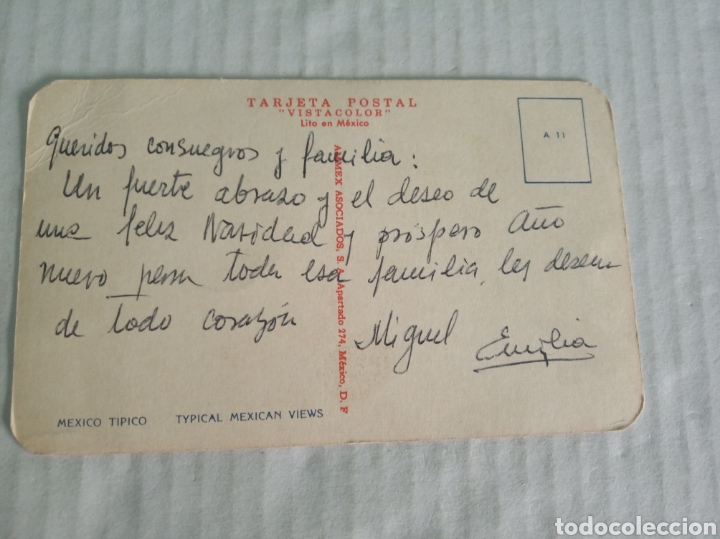 TARJETA POSTAL
"VISTACOLOR"
Lito en México
A 11
Queridos consuegros y familia:
Un fuerte abrazo y el deseo de
una feliz Navidad y próspero Año
nuevo para toda esa familia, les desean
de todo corazón Miguel Emilia
ASOCIADOS, S. A. Apartado 274, México, D. F
MEXICO TIPICO TYPICAL MEXICAN VIEWS
todocoleccion